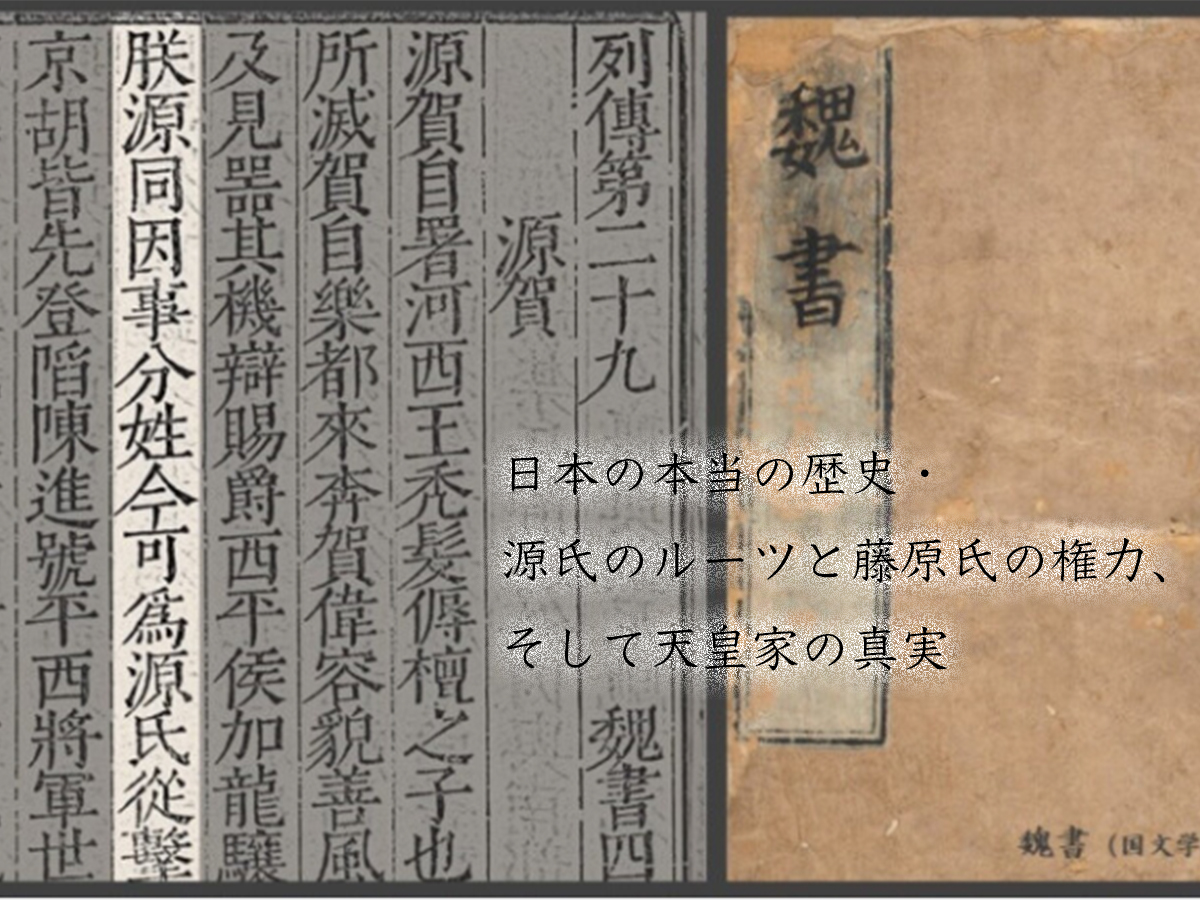 列傳第二十九 魏書四
源賀
源賀自署河西王禿髮傉檀之子也
所滅賀自樂都來奔賀偉容貌善風
及見器其機辯賜爵西平侯加龍驤
朕源同因事分姓今可為源氏從擊
京胡皆先登陷陳進號平西將軍世
魏書
日本の本当の歴史・
源氏のルーツと藤原氏の権力、
そして天皇家の真実
魏書 (国文学